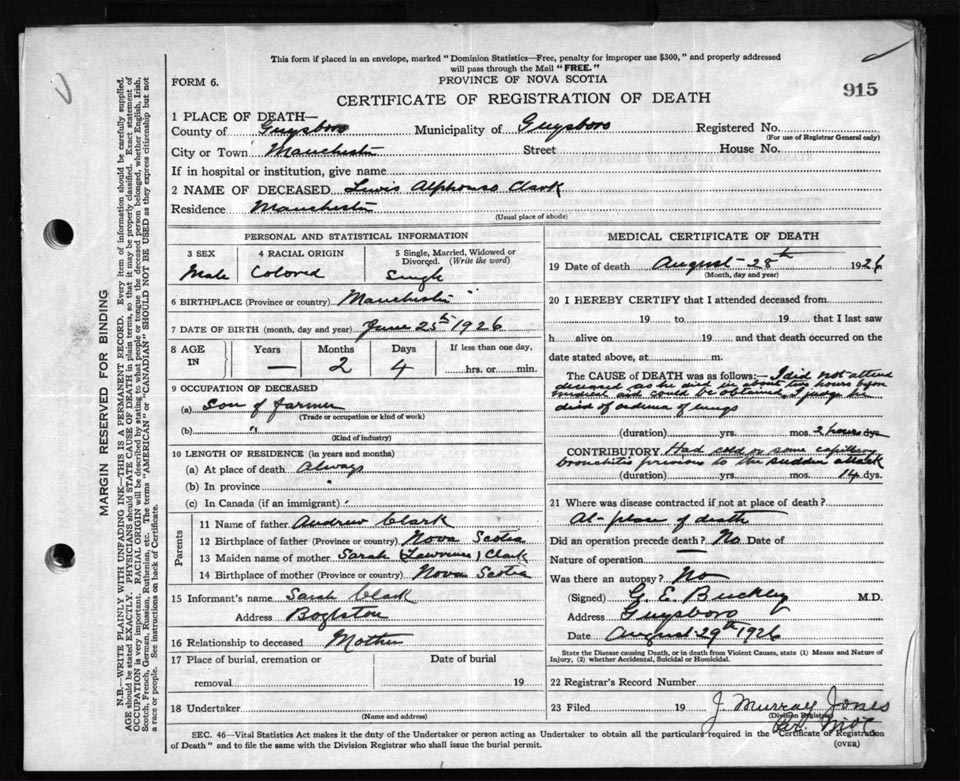 This form if placed in an envelope, marked "Dominion Statistics—Free, penalty for improper use $300," and properly addressed
will pass through the Mail "FREE."
FORM 6.
PROVINCE OF NOVA SCOTIA
915
CERTIFICATE OF REGISTRATION OF DEATH
1 PLACE OF DEATH—
County of Guysboro Municipality of Guysboro Registered No.
(For use of Registrar General only)
City or Town Manchester Street House No.
If in hospital or institution, give name
2 NAME OF DECEASED Lewis Alphonso Clark
Residence Manchester
(Usual place of abode)
PERSONAL AND STATISTICAL INFORMATION
3 SEX 4 RACIAL ORIGIN 5 Single, Married, Widowed or
Divorced. (Write the word)
Male Colored Single
6 BIRTHPLACE (Province or country) Manchester "
7 DATE OF BIRTH (month, day and year) June 25th 1926
8 AGE Years Months Days If less than one day,
IN — 2 4 hrs. or min.
9 OCCUPATION OF DECEASED
(a) Son of farmer
(Trade or occupation or kind of work)
(b) "
(Kind of industry)
10 LENGTH OF RESIDENCE (in years and months)
(a) At place of death Always
(b) In province "
(c) In Canada (if an immigrant) "
Parents
11 Name of father Andrew Clark
12 Birthplace of father (Province or country) Nova Scotia
13 Maiden name of mother Sarah (Lawrence) Clark
14 Birthplace of mother (Province or country) Nova Scotia
15 Informant's name Sarah Clark
Address Boylston
16 Relationship to deceased Mother
17 Place of burial, cremation or Date of burial
removal 19
18 Undertaker
(Name and address)
MEDICAL CERTIFICATE OF DEATH
19 Date of death August 28th 1926
(Month, day and year)
20 I HEREBY CERTIFY that I attended deceased from
19 to 19 that I last saw
h alive on 19 and that death occurred on the
date stated above, at m.
The CAUSE of DEATH was as follows:— I did not attend
deceased as he died in about two hours before
medical aid could be obtained. I judge he
died of oedema of lungs
(duration) yrs. mos. 2 hours dys.
CONTRIBUTORY Had cold or some capillary
bronchitis previous to the sudden attack
(duration) yrs. mos. 14 dys.
21 Where was disease contracted if not at place of death?
At place of death
Did an operation precede death? No Date of
Nature of operation —
Was there an autopsy? No
(Signed) G. E. Buckley M.D.
Address Guysboro
Date August 29th 1926
State the Disease causing Death, or in death from Violent Causes, state (1) Means and Nature of
Injury, (2) whether Accidental, Suicidal or Homicidal.
22 Registrar's Record Number
23 Filed 19 J. Murray Jones
(Division Registrar)
SEC. 46—Vital Statistics Act makes it the duty of the Undertaker or person acting as Undertaker to obtain all the particulars required in the Certificate of Registration
of Death" and to file the same with the Division Registrar who shall issue the burial permit.
(OVER)
MARGIN RESERVED FOR BINDING
N.B.—WRITE PLAINLY WITH UNFADING INK—THIS IS A PERMANENT RECORD. Every item of information should be carefully supplied.
AGE should be stated EXACTLY. PHYSICIANS should STATE CAUSE OF DEATH in plain terms, so that it may be properly classified. Exact statement of
OCCUPATION is very important. RACIAL ORIGIN will be described by stating to what people or tongue the deceased person belonged, whether English, Irish,
Scotch, French, German, Russian, Ruthenian, etc. The terms "AMERICAN" or "CANADIAN" SHOULD NOT BE USED as they express citizenship but not
a race or people. See instructions on back of Certificate.